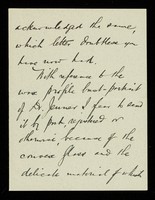 acknowledged the same,
which letter doubtless you
have now had.
With reference to the
wax profile bust-portrait
of Dr. Jenner I fear to send
it by post, registered or
otherwise, because of the
convex glass and the
delicate material of which